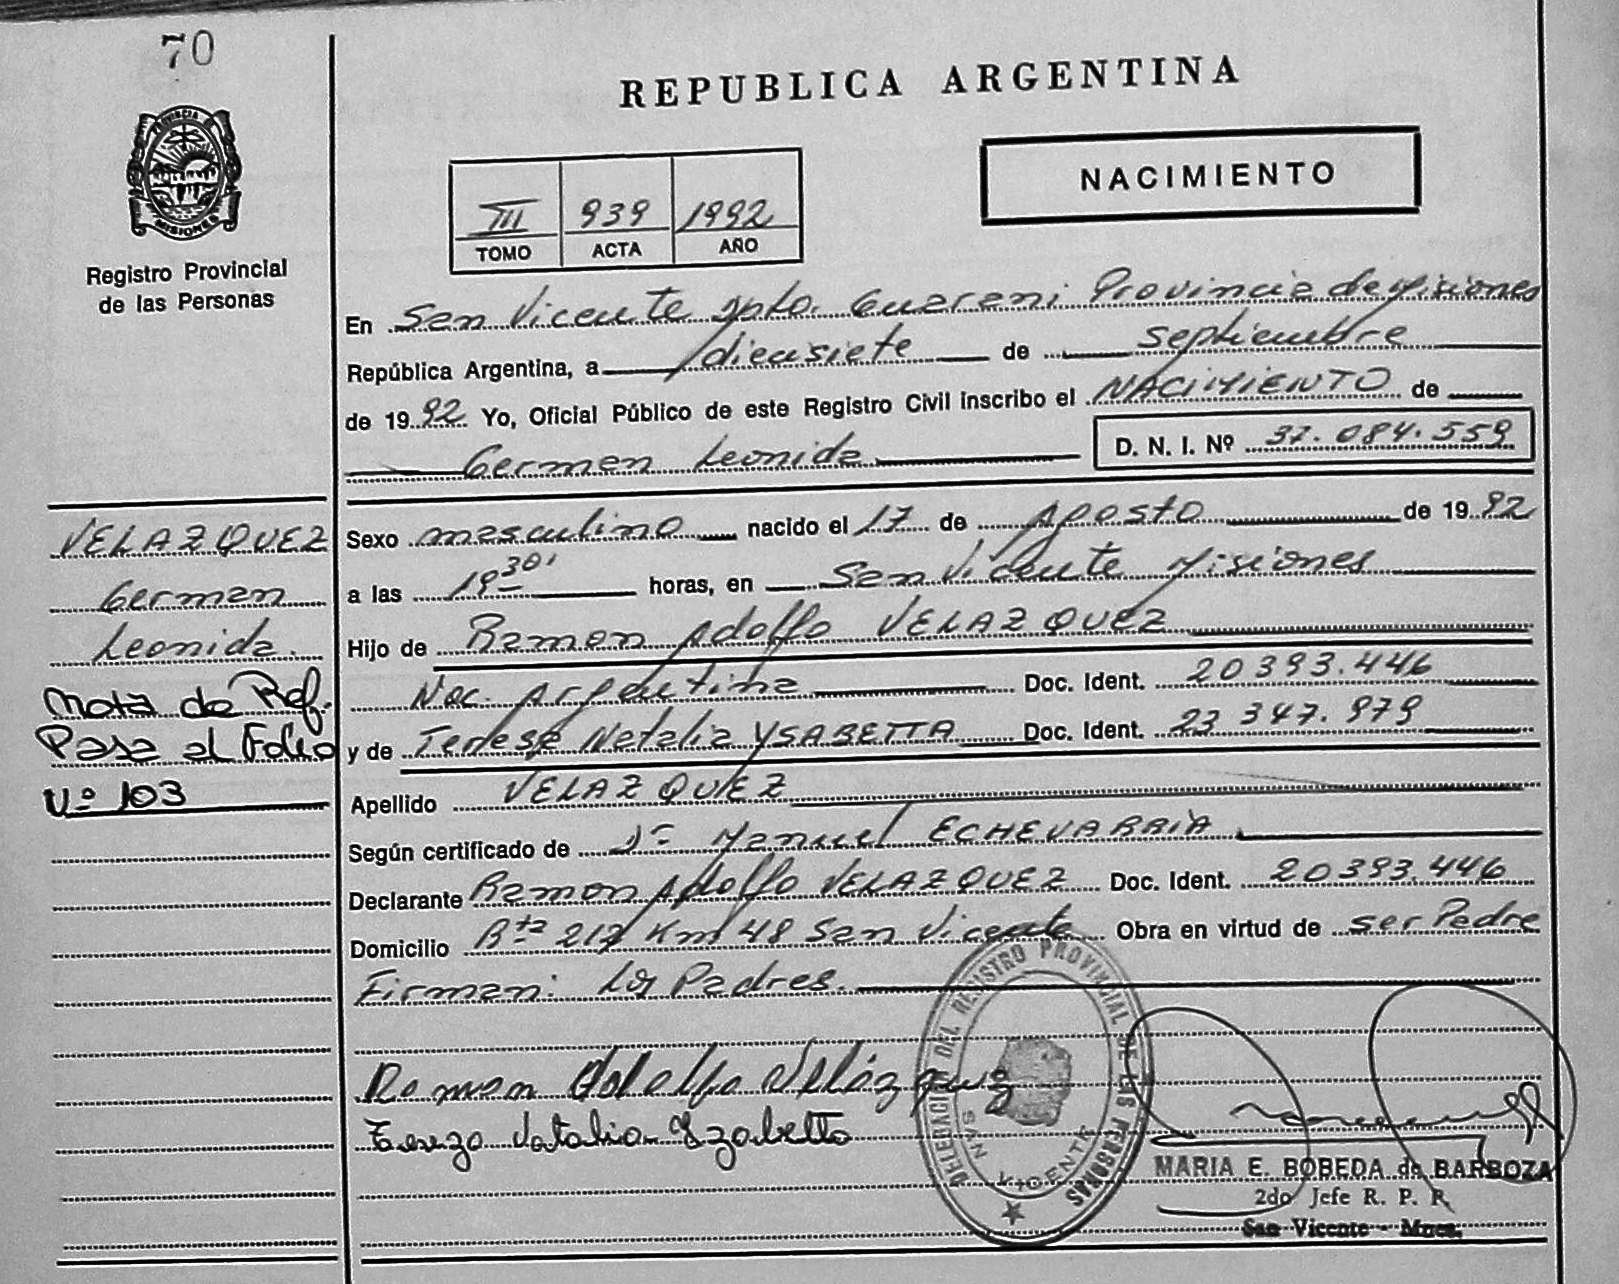 70
REPUBLICA ARGENTINA
PROVINCIA DE
MISIONES
Registro Provincial
de las Personas
III 939 1992
TOMO ACTA AÑO
NACIMIENTO
En San Vicente Dpto. Guarani Provincia de Misiones
República Argentina, a diecisiete de septiembre
de 1992 Yo, Oficial Público de este Registro Civil inscribo el NACIMIENTO de
German Leonida D. N. I. Nº 37.084.559
VELAZQUEZ
German
Leonida.
Nota de Ref.
Pasa al Folio
Nº 103
Sexo masculino nacido el 17 de Agosto de 1992
a las 19 30' horas, en San Vicente Misiones
Hijo de Ramon Adolfo VELAZQUEZ
Nac. Argentina Doc. Ident. 20393.446
y de Teresa Natalia YSABETTA Doc. Ident. 23 347.979
Apellido VELAZQUEZ
Según certificado de Dr Manuel ECHEVARRIA
Declarante Ramon Adolfo VELAZQUEZ Doc. Ident. 20393.446
Domicilio Rta 212 Km 48 San Vicente Obra en virtud de ser Padre
Firman: Los Padres.
Ramon Adolfo Velázquez
Teresa Natalia Yzabetta
DELEGACION DEL REGISTRO PROVINCIAL DE LAS PERSONAS
SAN VICENTE
MARIA E. BOBEDA de BARBOZA
2do Jefe R. P. P.
San Vicente - Mnes.